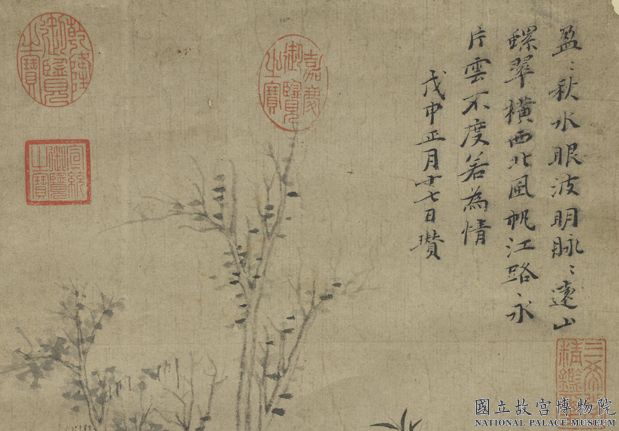 盈〻秋水眼波明脉〻遠山
螺翠橫西北風帆江路永
片雲不度若為情
戊申正月十七日瓚
嘉慶御覽之寶
乾隆御覽之寶
宣統御覽之寶
國立故宮博物院
NATIONAL PALACE MUSEUM